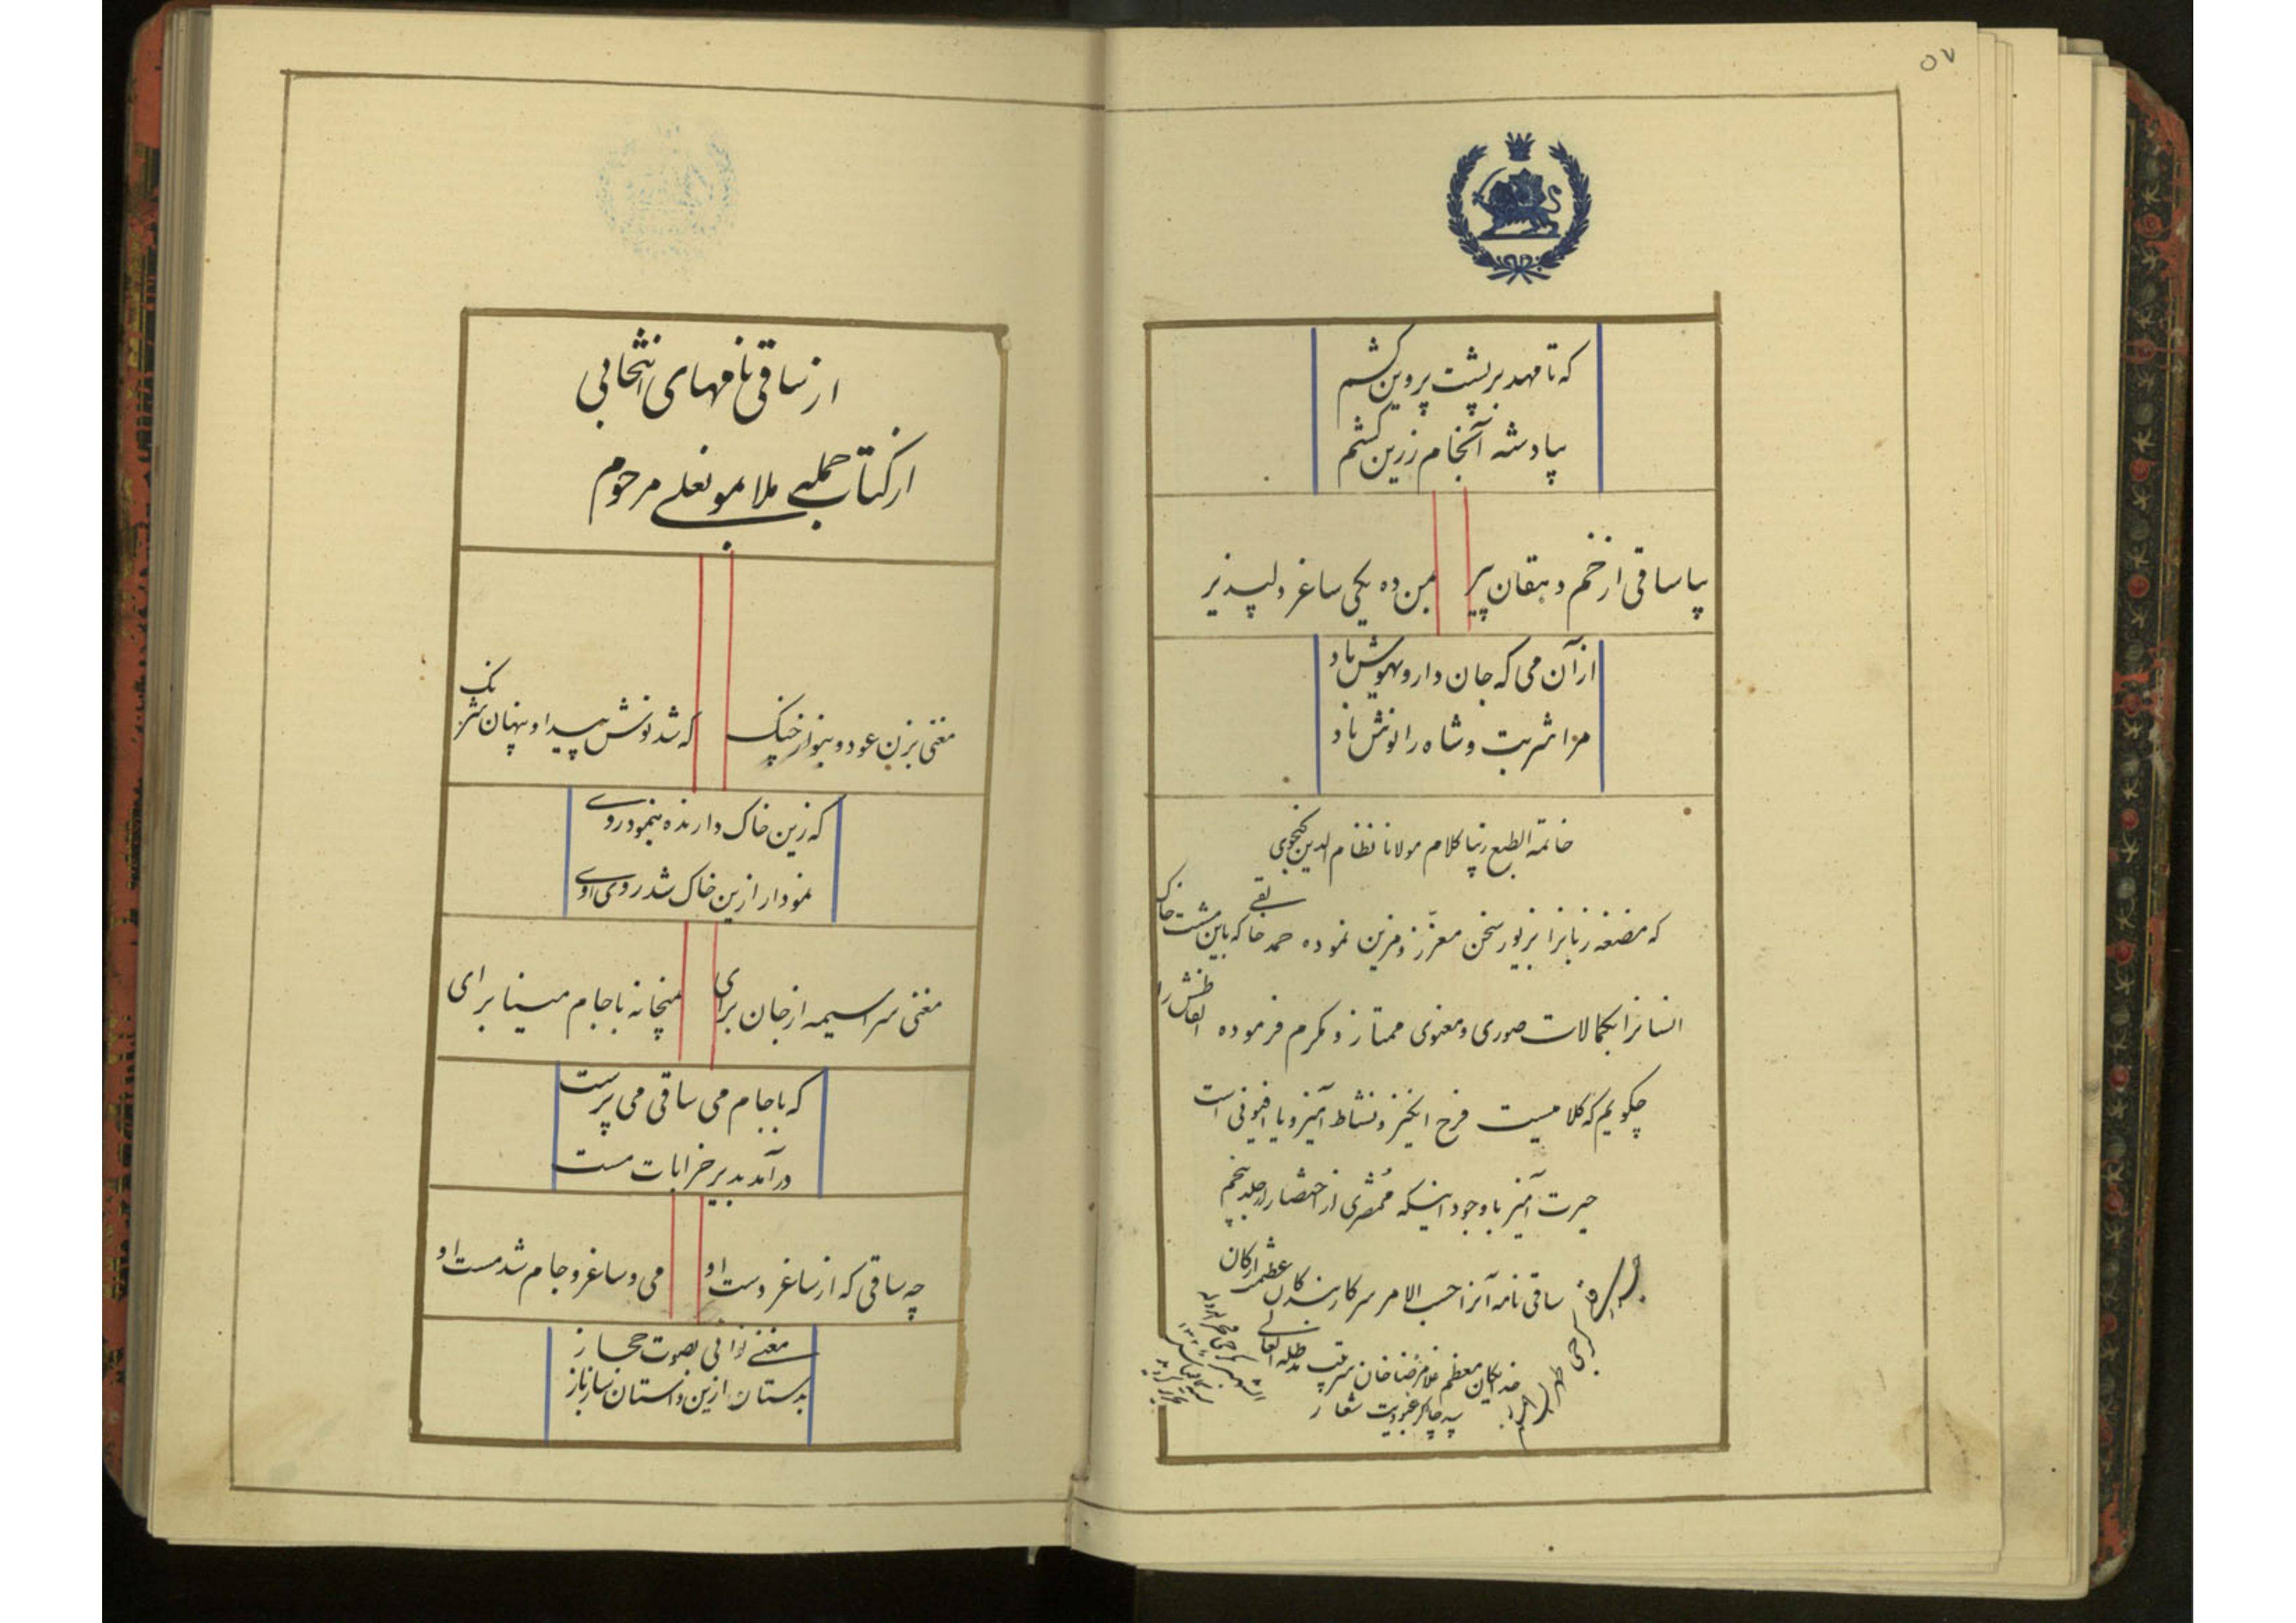 ۵۷
که تا مهد بر پشت پروین کشم
بیاد شه آنجام زرین کشم
بیا ساقی از خم دهقان پیر
بمن ده یکی ساغر دلپذیر
از آن می که جان داروی هوش باد
مرا شربت و شاه را نوش باد
خاتمة الطبع کلام مولانا نظام الدین گنجوی
که مضغه زبانرا بزیور سخن معزز و مزین نموده حمد خالقی که باین مشت خاک
انسانرا بکمالات صوری و معنوی ممتاز و مکرم فرموده الفاظش را
چگویم که کلامیست فرح انگیز و نشاط آمیز و یا افیونی است
حیرت آمیز با وجود اینکه از اختصار از جلد پنجم
ساقی نامه آنرا حسب الامر سرکار بندگان ارکان
خدایگان معظم غلامرضا خان سرتیپ مدظله العالی
چاکر عبودیت شعار
از ساقی نامهای انتخابی
از کتاب حمله ملا بمونعلی مرحوم
مغنی بزن عود و بنواز چنگ
که شد نوش پیدا و پنهان شرنگ
که زین خاک دارنده بنمود روی
نمودار ازین خاک شد روی اوی
مغنی سراسیمه از جان برای
بمیخانه با جام مینا برای
که با جام می ساقی می پرست
درآمد بدیر خرابات مست
چه ساقی که از ساغر دست او
می و ساغر و جام شد مست او
مغنی نوائی بصوت حجاز
بدستان ازین داستان ساز باز